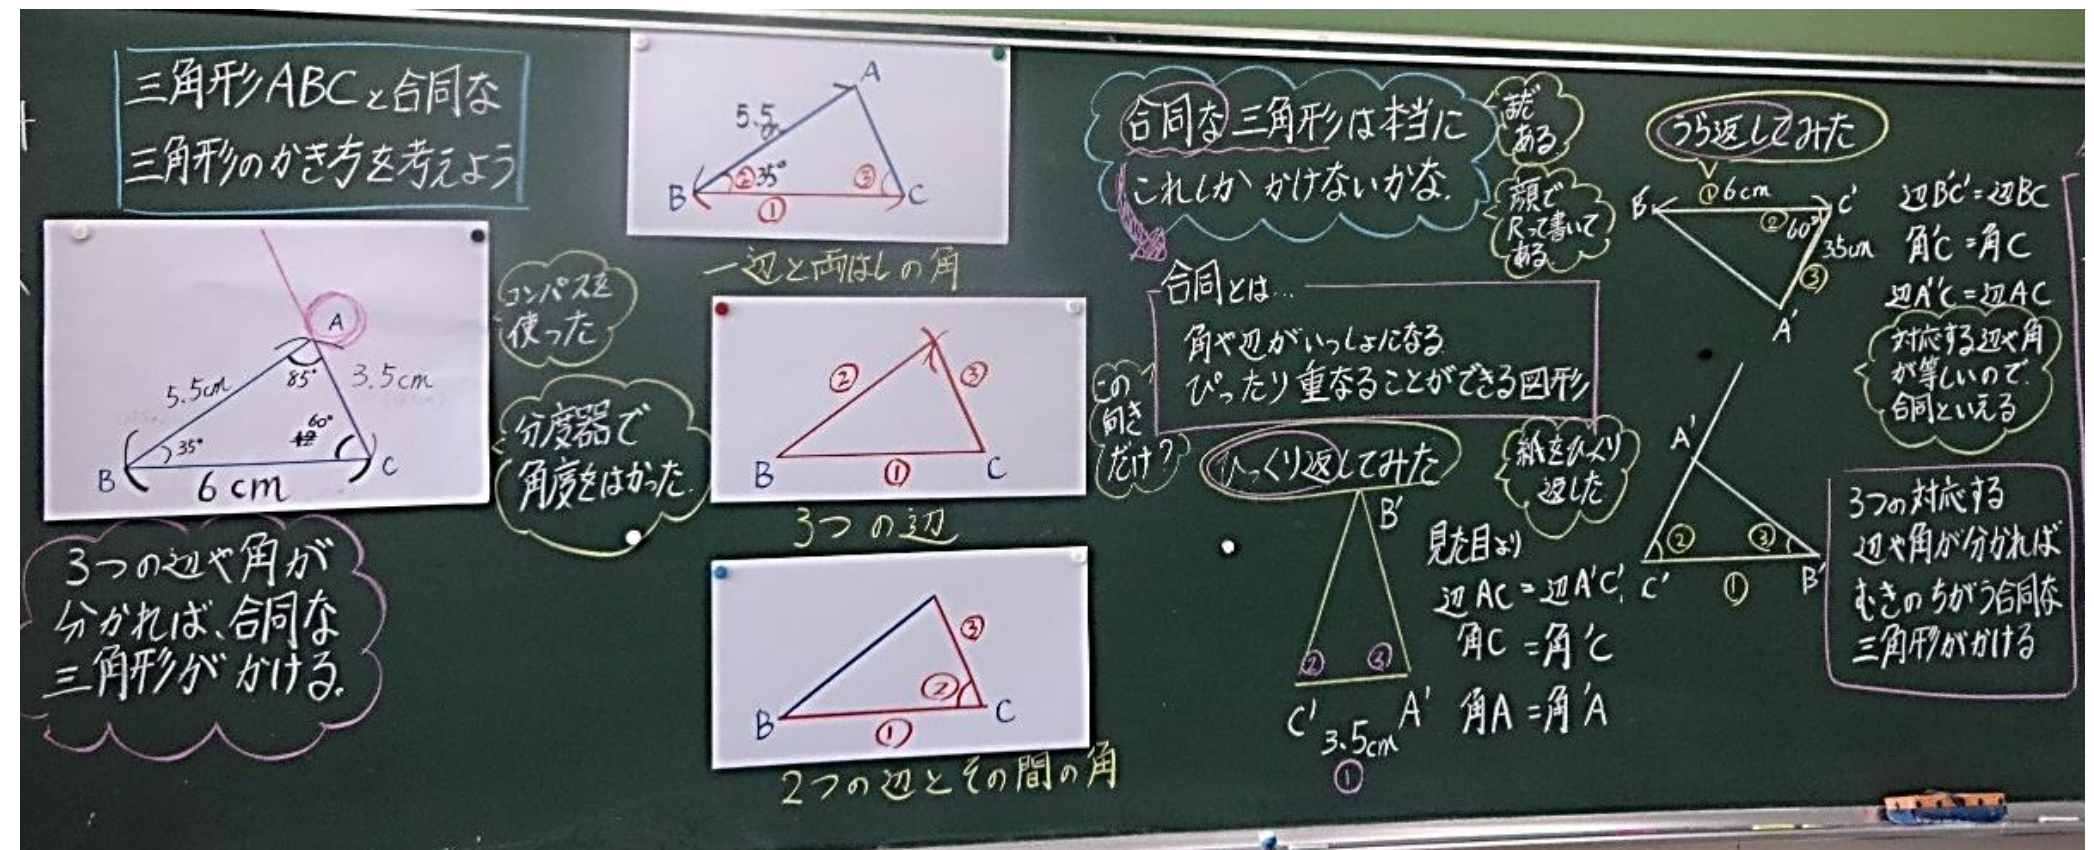 三角形ABCと合同な
三角形のかき方を考えよう
A
85°
5.5cm
3.5cm
60°
35°
B
C
6cm
3つの辺や角が
分かれば、合同な
三角形がかける.
コンパスを
使った
分度器で
角度をはかった.
A
5.5
②35°
③
B
①
C
一辺と両はしの角
②
③
B
①
C
3つの辺
③
②
B
①
C
2つの辺とその間の角
合同な三角形は本当に
これしか かけないかな.
まだ
ある
ある.
合同とは...
角や辺がいっしょになる
ぴったり重なることができる図形
この
向き
だけ?
ひっくり返してみた
紙をひっくり
返した
B'
②
③
C'
A'
3.5cm
①
見た目より
辺AC=辺A'C'
角C=角'C
角A=角'A
うら返してみた
①6cm
B'
C'
②60°
3.5cm
③
A'
辺B'C'=辺BC
角'C=角C
辺A'C=辺AC
対応する辺や角
が等しいので.
合同といえる
A'
②
③
C'
①
B'
3つの対応する
辺や角が分かれば
むきのちがう合同な
三角形がかける